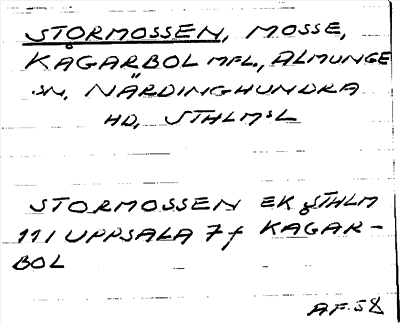 STORMOSSEN, MOSSE,
KÅGARBOL MFL., ALMUNGE
SN, NÄRDINGHUNDRA
HD, STHLMSL
STORMOSSEN EK STHLM
111 UPPSALA 7f KAGAR-
BOL
AF. 58